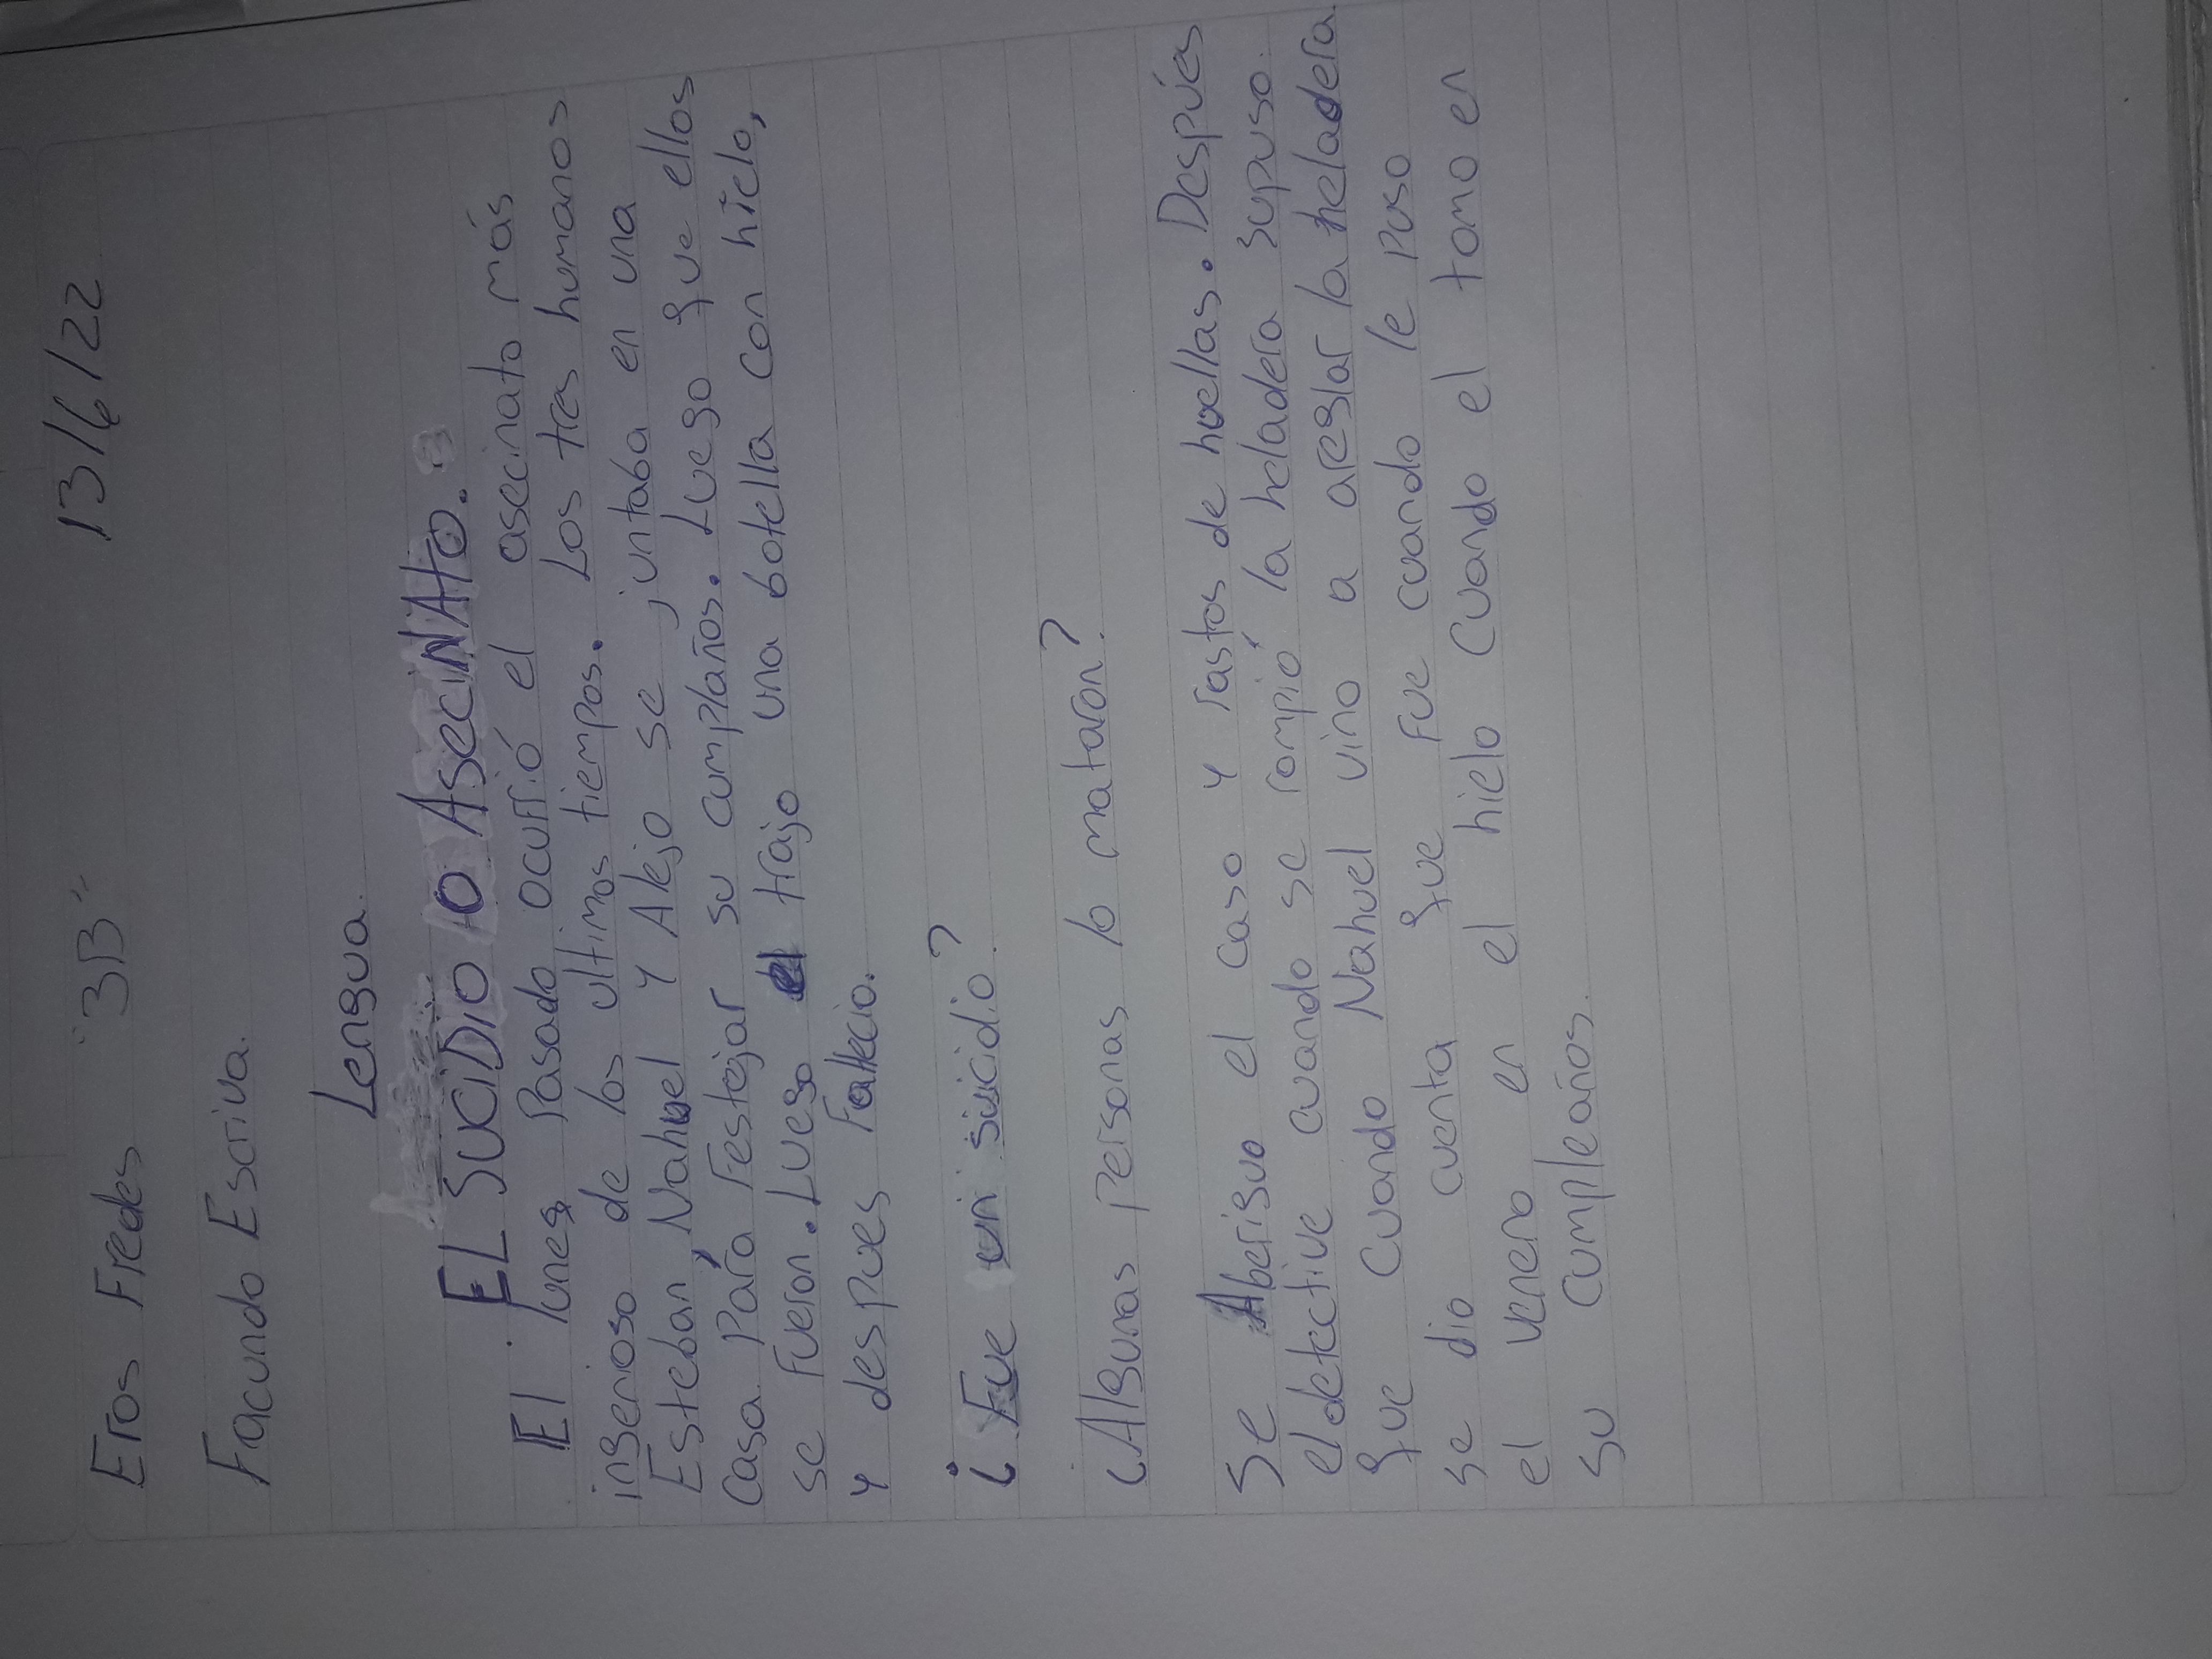 Eros Fredes "3B" 13/6/22
Facundo Escriva.
Lengua.
EL SUCiDiO O ASeciNAto.
El lunes Pasado ocurrió el asecinato más
ingenioso de los ultimos tiempos. Los tres humanos
Esteban, Nahuel y Alejo se juntaba en una
Casa Para Festejar su cumplaños. Luego que ellos
se Fueron. Luego el trajo una botella con hielo,
y despues Fallecio.
¿Fue un suicidio?
¿Algunas Personas lo mataron?
Se Aberiguo el caso y rastos de huellas. Despúes
el detective cuando se rompió la heladera supuso
que Cuando Nahuel vino a areglar la heladera.
se dio cuenta que Fue cuando le puso
el veneno en el hielo Cuando el tomo en
su cumpleaños.